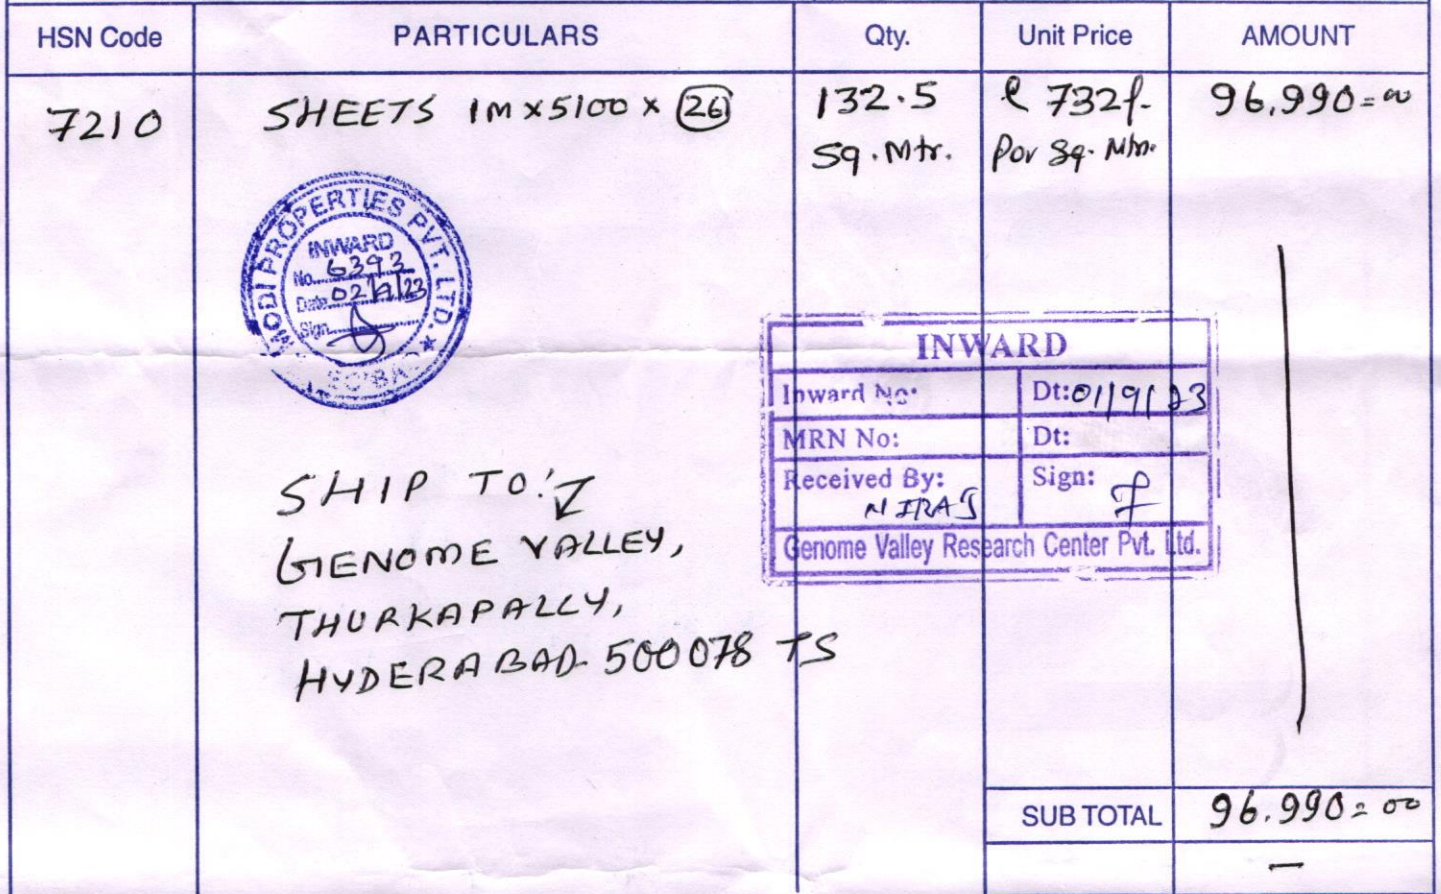 HSN Code PARTICULARS Qty. Unit Price AMOUNT
7210 SHEETS 1M x 5100 x 26 132.5 @ 732/- 96.990=00
Sq.Mtr. Per Sq. Mtr.
MODI PROPERTIES PVT. LTD.
INWARD
No. 6393
Date 02/9/23
Sign
INWARD
Inward No. Dt: 01/9/23
MRN No: Dt:
Received By: Sign:
NIRAJ
Genome Valley Research Center Pvt. Ltd.
SHIP TO:
GENOME VALLEY,
THURKAPALLY,
HYDERABAD-500078 TS
SUB TOTAL 96.990=00
—